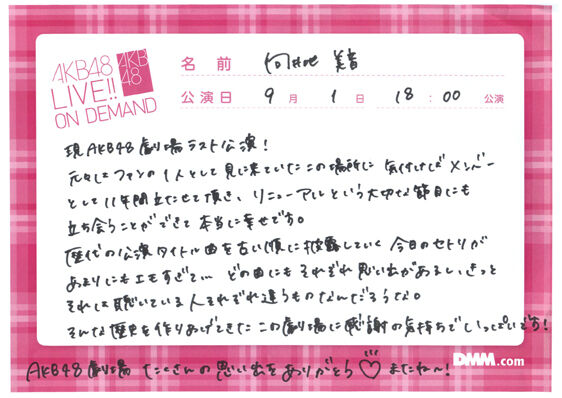 AKB48
LIVE!!
ON DEMAND
AKB
48
名前 向井地 美音
公演日 9月 1日 18:00 公演
現AKB48劇場ラスト公演！
元々はファンの1人として見に来ていたこの場所に 気付けばメンバー
として11年間立たせて頂き、リニューアルという大切な節目にも
立ち会うことができて本当に幸せです。
歴代の公演タイトル曲を古い順に披露していく 今日のセトリが
あまりにもエモすぎて… どの曲にもそれぞれ思い出があるし、きっと
それは聴いている人それぞれ違うものなんだろうな。
そんな歴史を作りあげてきたこの劇場に感謝の気持ちでいっぱいです！
DMM.com
AKB48劇場 たくさんの思い出をありがとう♡またね〜！